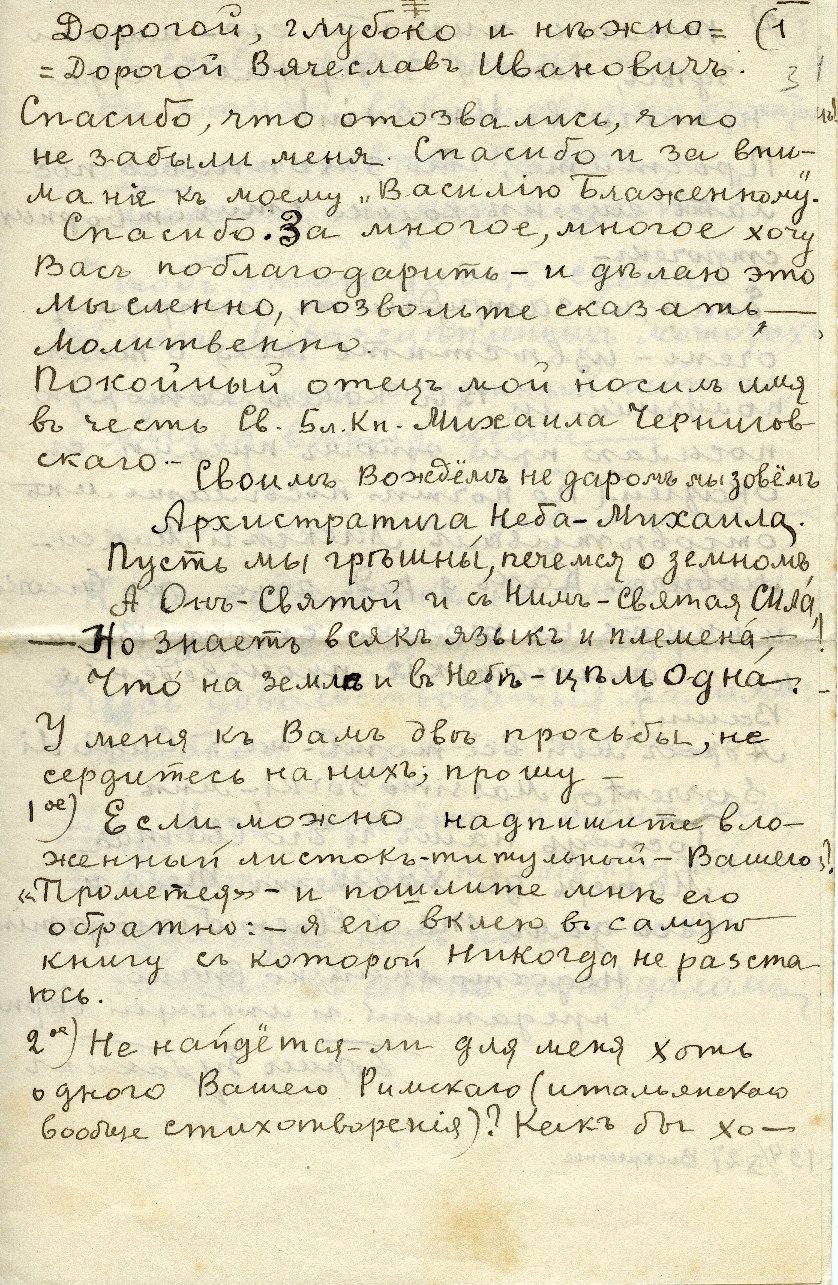 Дорогой, глубоко и нѣжно= (1
=Дорогой Вячеславъ Ивановичъ.
Спасибо, что отозвались, что
не забыли меня. Спасибо и за вни-
манiе къ моему „Василiю Блаженному".
Спасибо. За многое, многое хочу
Васъ поблагодарить – и дѣлаю это
мысленно, позвольте сказать —
молитвенно.
Покойный отецъ мой носилъ имя
въ честь Св. Бл. Кн. Михаила Чернигов-
скаго. –
Своимъ Вождёмъ не даромъ мы зовёмъ
Архистратига Неба – Михаила.
Пусть мы грѣшны, печемся о земномъ
А Онъ – Святой и съ Нимъ – Святая Сила!
— Но знаетъ всякъ языкъ и племена́, —
Что́ на землѣ и въ Небѣ – цѣль одна́.
У меня къ Вамъ двѣ просьбы, не
сердитесь на нихъ, прошу –
1ое) Если можно надпишите вло-
женный листокъ-титульный – Вашего
«Прометея» – и пошлите мнѣ его
обратно: – я его вклею въ самую
книгу съ которой никогда не разста-
юсь.
2ое) Не найдётся-ли для меня хоть
одного Вашего Римскаго (итальянскаго
вообще стихотворенiя)? Какъ бы хо—